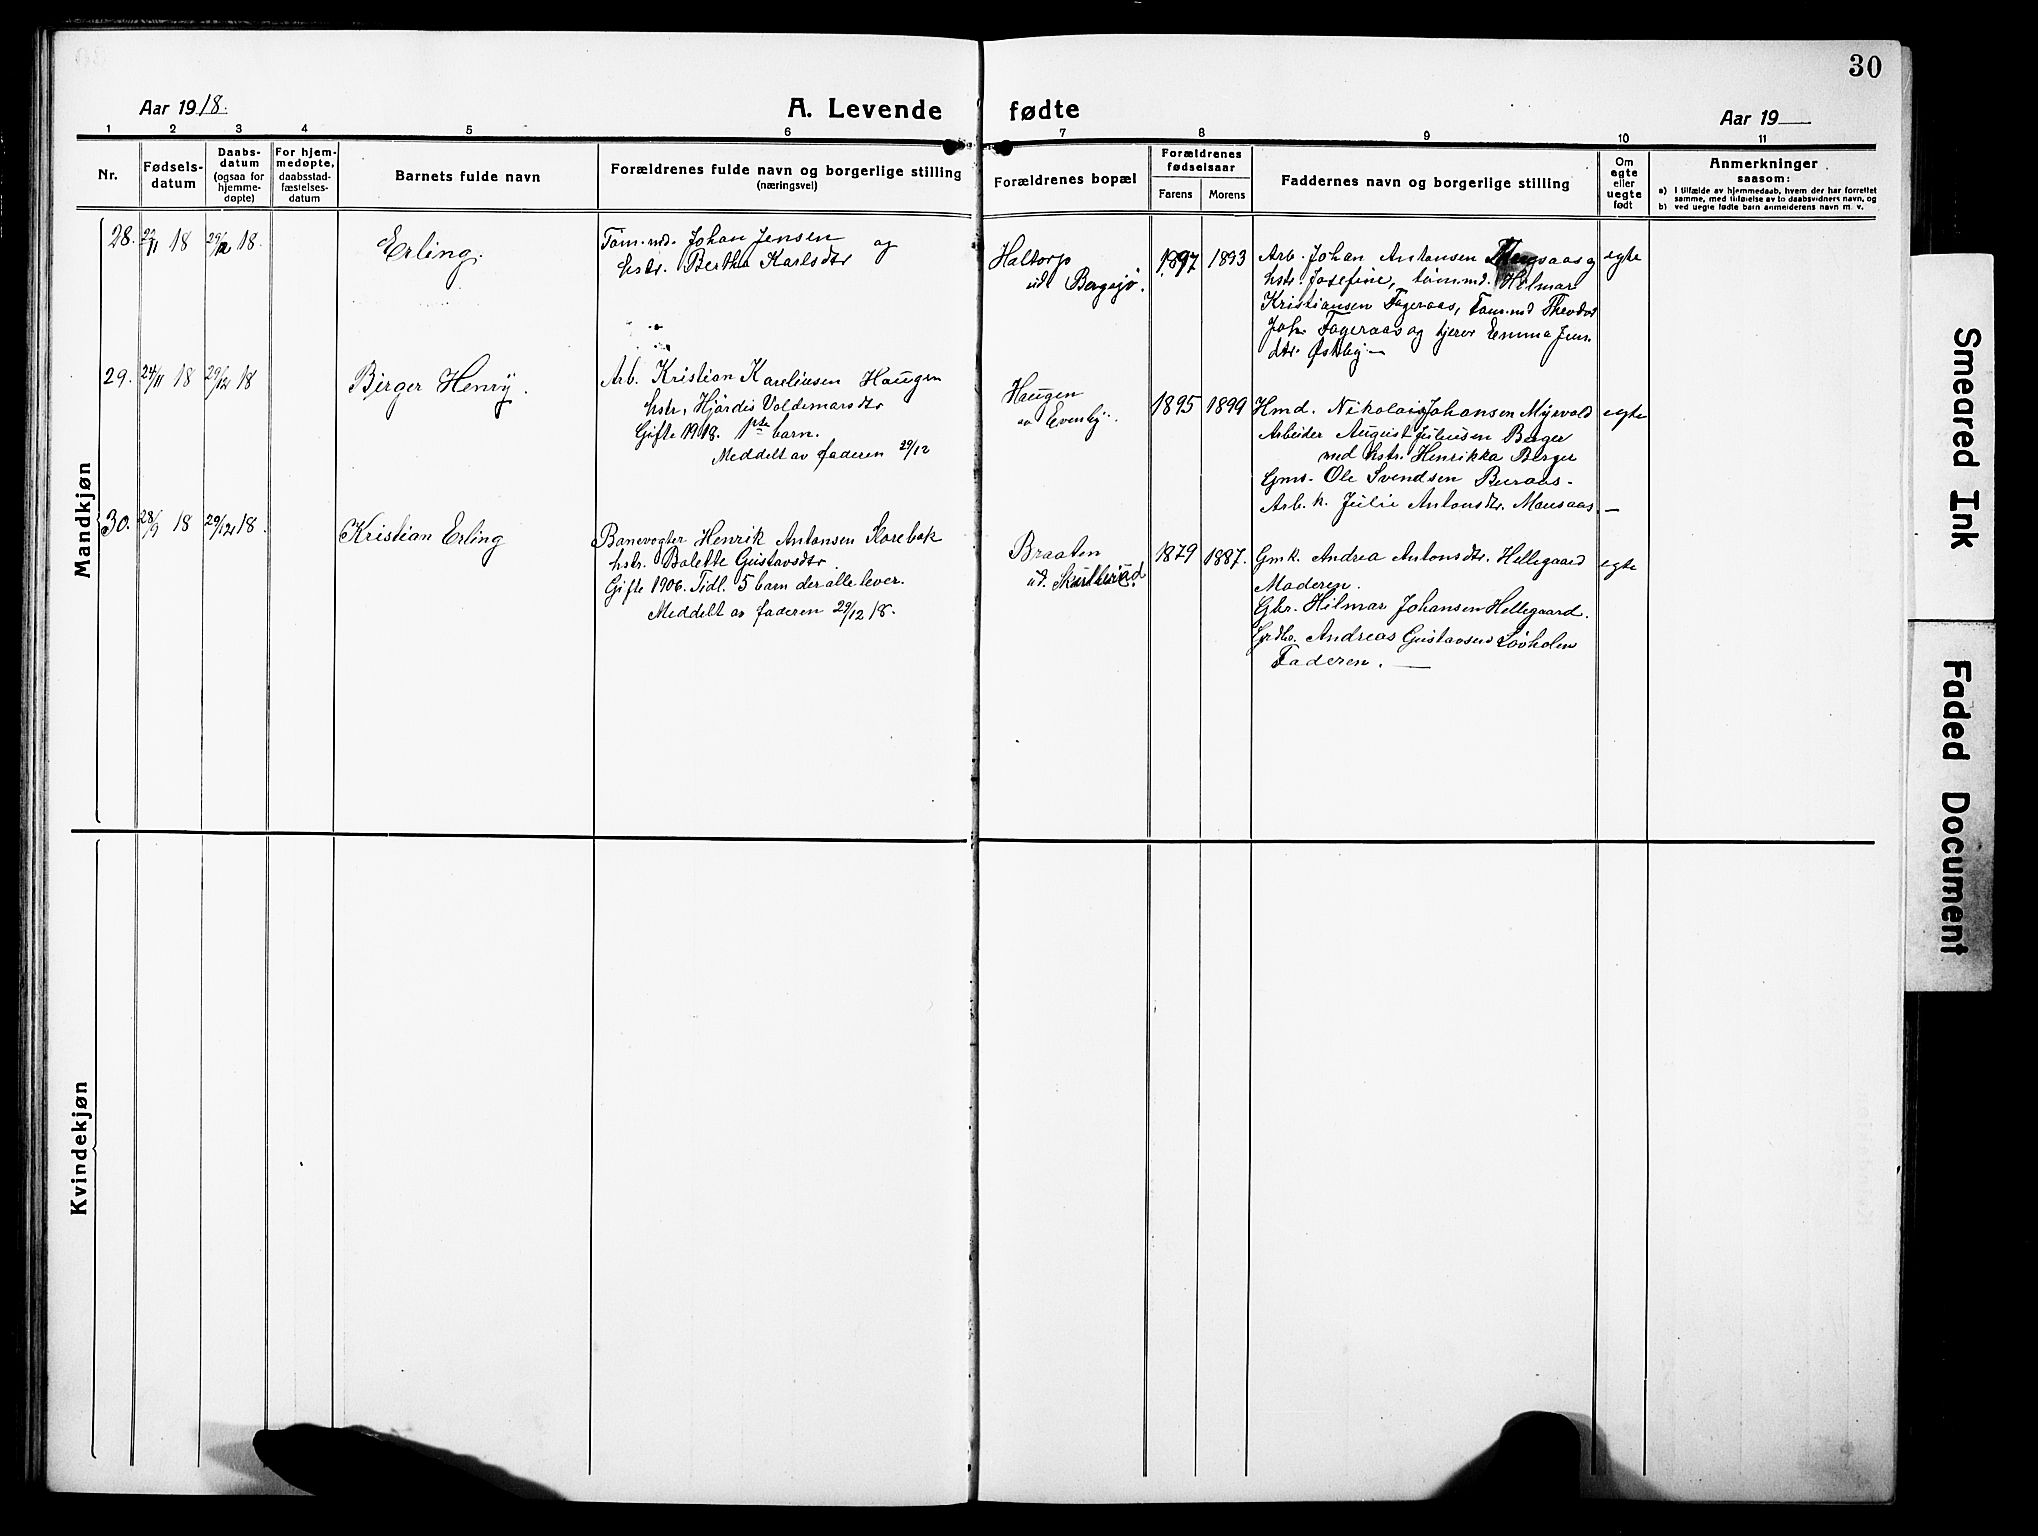 30
Aar 1918.
A. Levende fødte
Aar 19
1 2 3 4 5 6 7 8 9 10 11
Nr.
Fødsels-
datum
Daabs-
datum
(ogsaa for
hjemme-
døpte)
For hjem-
medøpte,
daabsstad-
fæstelses-
datum
Barnets fulde navn
Forældrenes fulde navn og borgerlige stilling
(næringsvei)
Forældrenes bopæl
Forældrenes
fødselsaar
Farens Morens
Faddernes navn og borgerlige stilling
Om
egte
eller
uegte
født
Anmerkninger
saasom:
a) I tilfælde av hjemmedaab, hvem der har forrettet
samme, med tilføielse av to daabsvidners navn, og
b) ved uegte fødte barn anmelderens navn m. v.
Mandkjøn
28. 18 29/12 18.
Erling.
Tøm.md. Johan Jensen og
hstr. Bertha Karlsdtr
Haltorp
ud. Bergsjø.
1897 1893
Arb. Johan Antonsen
hstr. Josefine, tømmd. Hilmar
Kristiansen Fageraas, Tøm.md Theodor
Joh. Fageraas og tjener Emma Jens
dtr. Østby —
egte
29. 24/11 18 29/12 18
Birger Henry.
Arb. Kristian Kareliusen Haugen
hstr. Hjørdis Valdemarsdtr
Gifte 1918. 1ste barn.
Meddelt av faderen 29/12
Haugen
av Evenby.
1895 1899
Hmd. Nikolai Johansen Myrvold
Arbeider August Juliusen Berger
med hstr. Henrikka Berger
Gms. Ole Svendsen Buraas.
Arb. k. Julie Antonsdtr. Mausaas. —
egte
30. 28/9 18 29/12 18.
Kristian Erling
Banevogter Henrik Antonsen Korebæk
hstr. Bolette Gustavsdtr.
Gifte 1906. Tidl. 5 barn der alle lever.
Meddelt av faderen 29/12 18.
Braaten
ud. Skultherud
1879 1887.
Gmk. Andrea Antonsdtr. Hellegaard
Moderen.
Gbr. Hilmar Johansen Hellegaard.
Grdbr. Andreas Gustavsen Løvholen
Faderen. —
egte
Kvindekjøn
Smeared Ink
Faded Document